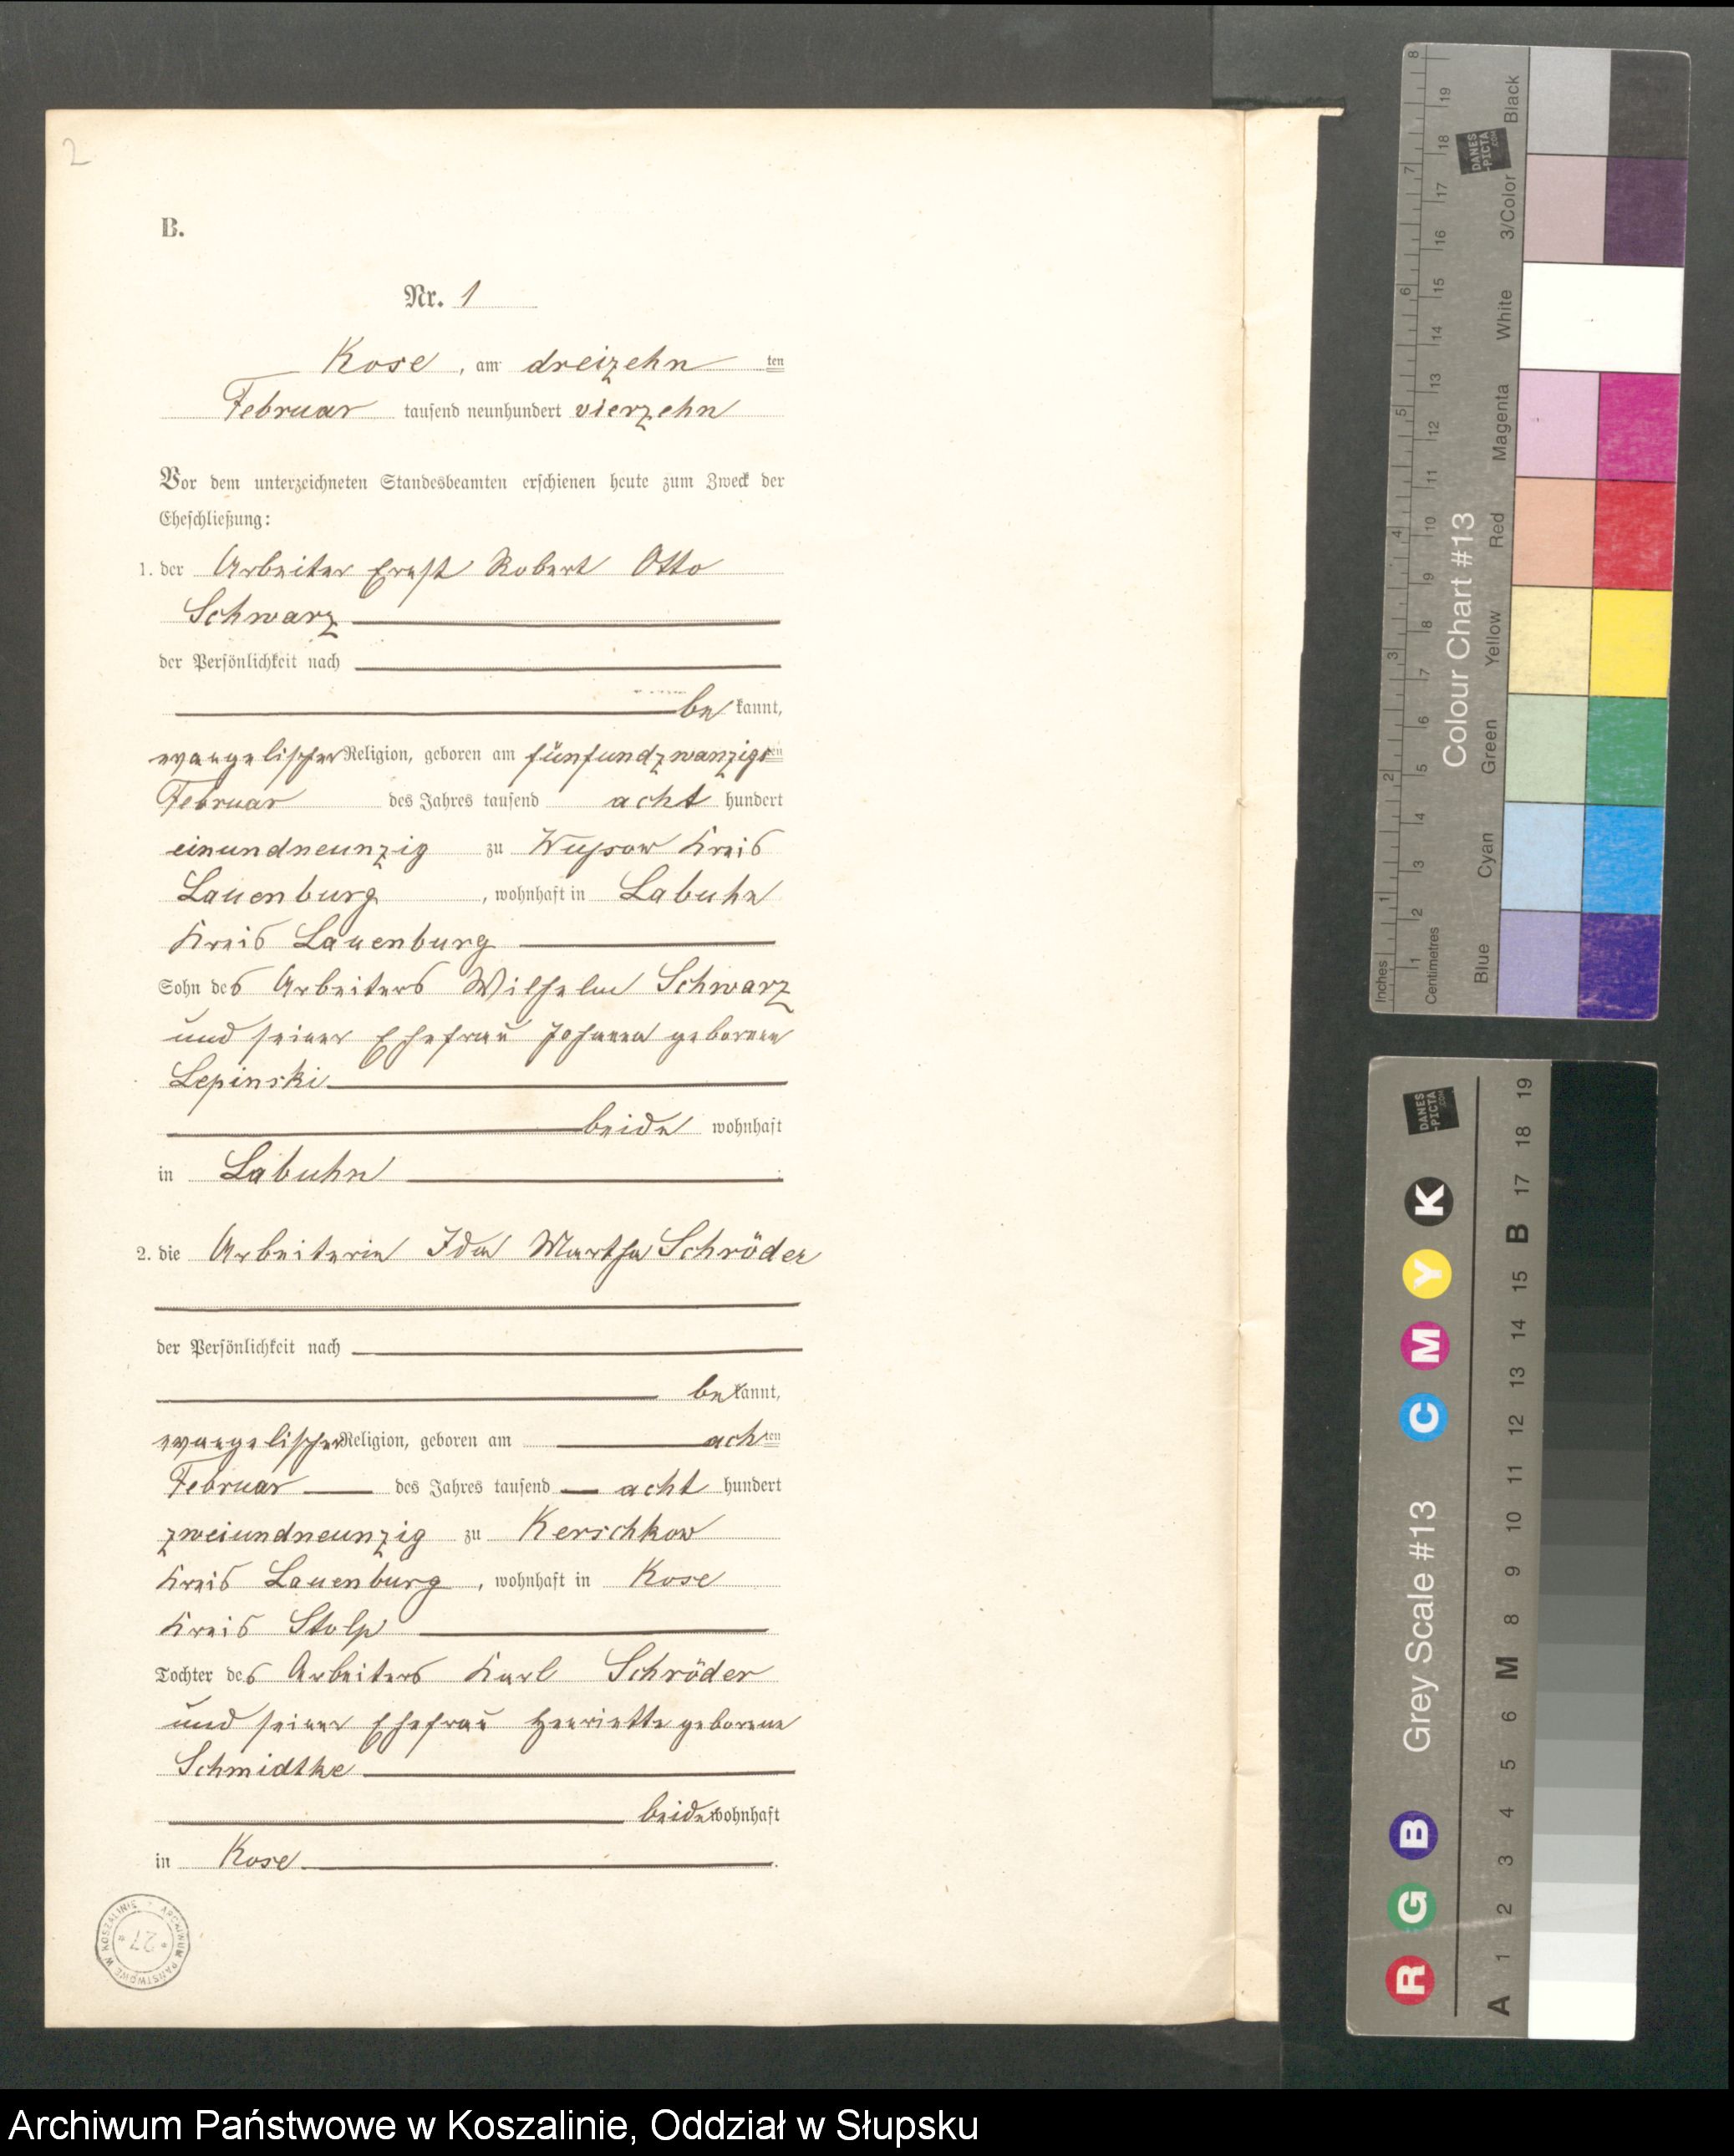 2
B.
Nr. 1
Kose, am dreizehn ten
Februar tausend neunhundert vierzehn
Vor dem unterzeichneten Standesbeamten erschienen heute zum Zweck der
Eheschließung:
1. der Arbeiter Ernst Robert Otto
Schwarz
der Persönlichkeit nach
be kannt,
evangelischer Religion, geboren am fünfundzwanzigsten
Februar des Jahres tausend acht hundert
einundneunzig zu Wussow Kreis
Lauenburg, wohnhaft in Labuhn
Kreis Lauenburg
Sohn des Arbeiters Wilhelm Schwarz
und seiner Ehefrau Johanna geborenen
Lepinski
beide wohnhaft
in Labuhn.
2. die Arbeiterin Ida Martha Schröder
der Persönlichkeit nach
bekannt,
evangelischer Religion, geboren am achten
Februar des Jahres tausend acht hundert
zweiundneunzig zu Kerschkow
Kreis Lauenburg, wohnhaft in Kose
Kreis Stolp
Tochter des Arbeiters Karl Schröder
und seiner Ehefrau Henriette geborene
Schmidtke
beide wohnhaft
in Kose.
ARCHIWUM PAŃSTWOWE W KOSZALINIE
* 27 *
8 7 6 5 4 3 2 1 Inches
19 18 17 16 15 14 13 12 11 10 9 8 7 6 5 4 3 2 1 Centimetres
DANES
-PICTA
.COM
Colour Chart #13
Blue Cyan Green Yellow Red Magenta White 3/Color Black
DANES
-PICTA
.COM
Grey Scale #13
R G B C M Y K
A 1 2 3 4 5 6 M 8 9 10 11 12 13 14 15 B 17 18 19
Archiwum Państwowe w Koszalinie, Oddział w Słupsku